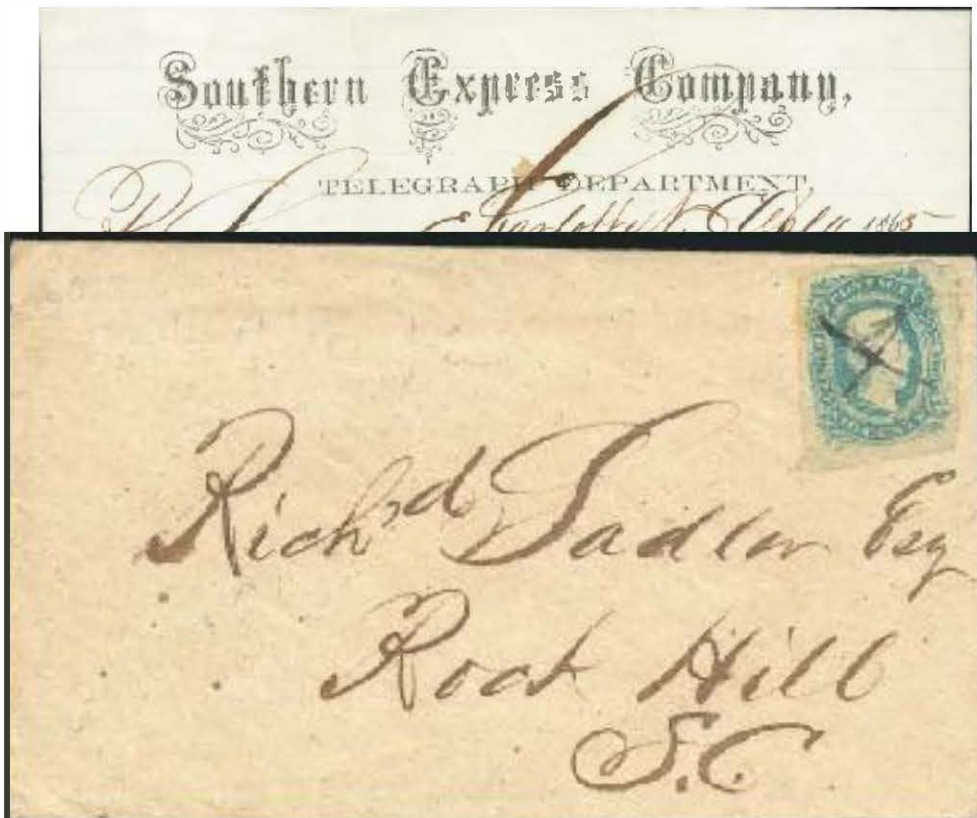 Southern Express Company,
TELEGRAPH DEPARTMENT,
1865
Rich'd Sadler Esq
Rock Hill
S.C.